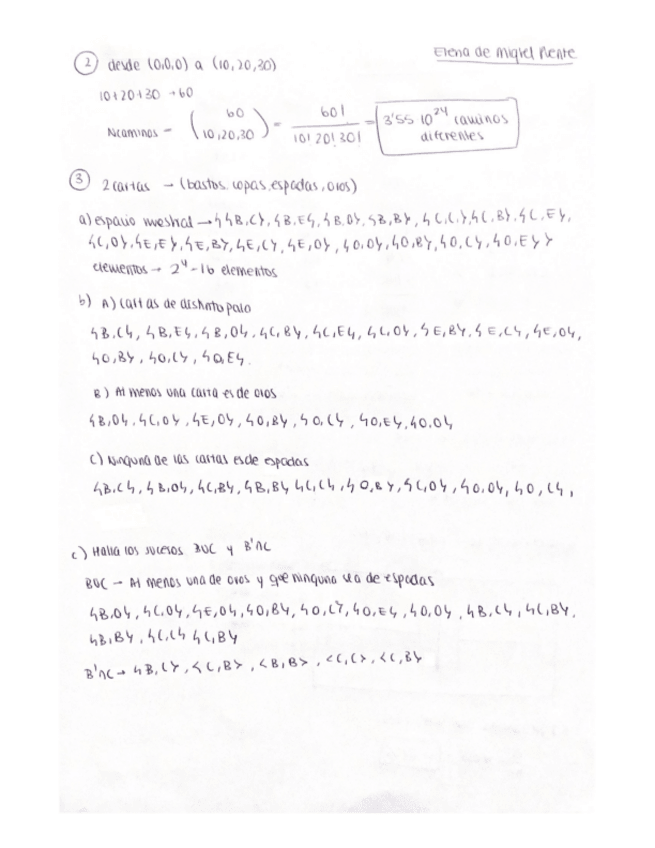 Elena de Miguel Rente
② desde (0,0,0) a (10,20,30)
10+20+30 → 60
Ncaminos = (60 10,20,30) = 60! / 10! 20! 30! = 3'55 10^24 caminos diferentes
③ 2 cartas → (bastos, copas, espadas, oros)
a) espacio muestral → {{B,C}, {B,E}, {B,O}, {B,B}, {C,C}, {C,B}, {C,E},
{C,O}, {E,E}, {E,B}, {E,C}, {E,O}, {O,O}, {O,B}, {O,C}, {O,E}}
elementos → 2^4 - 16 elementos
b) A) Cartas de distinto palo
{B,C}, {B,E}, {B,O}, {C,B}, {C,E}, {C,O}, {E,B}, {E,C}, {E,O},
{O,B}, {O,C}, {O,E}.
B) Al menos una carta es de oros
{B,O}, {C,O}, {E,O}, {O,B}, {O,C}, {O,E}, {O,O}
C) Ninguna de las cartas es de espadas
{B,C}, {B,O}, {C,B}, {B,B} {C,C}, {O,B}, {C,O}, {O,O}, {O,C},
c) Halla los sucesos BUC y B'∩C
BUC → Al menos una de oros y que ninguna sea de espadas
{B,O}, {C,O}, {E,O}, {O,B}, {O,C}, {O,E}, {O,O}, {B,C}, {C,B},
{B,B}, {C,C} {C,B}
B'∩C → {B,C}, {C,B}, {B,B}, {C,C}, {C,B}